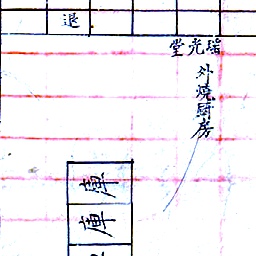 退
瑞光堂
外燒厨房
庫
庫